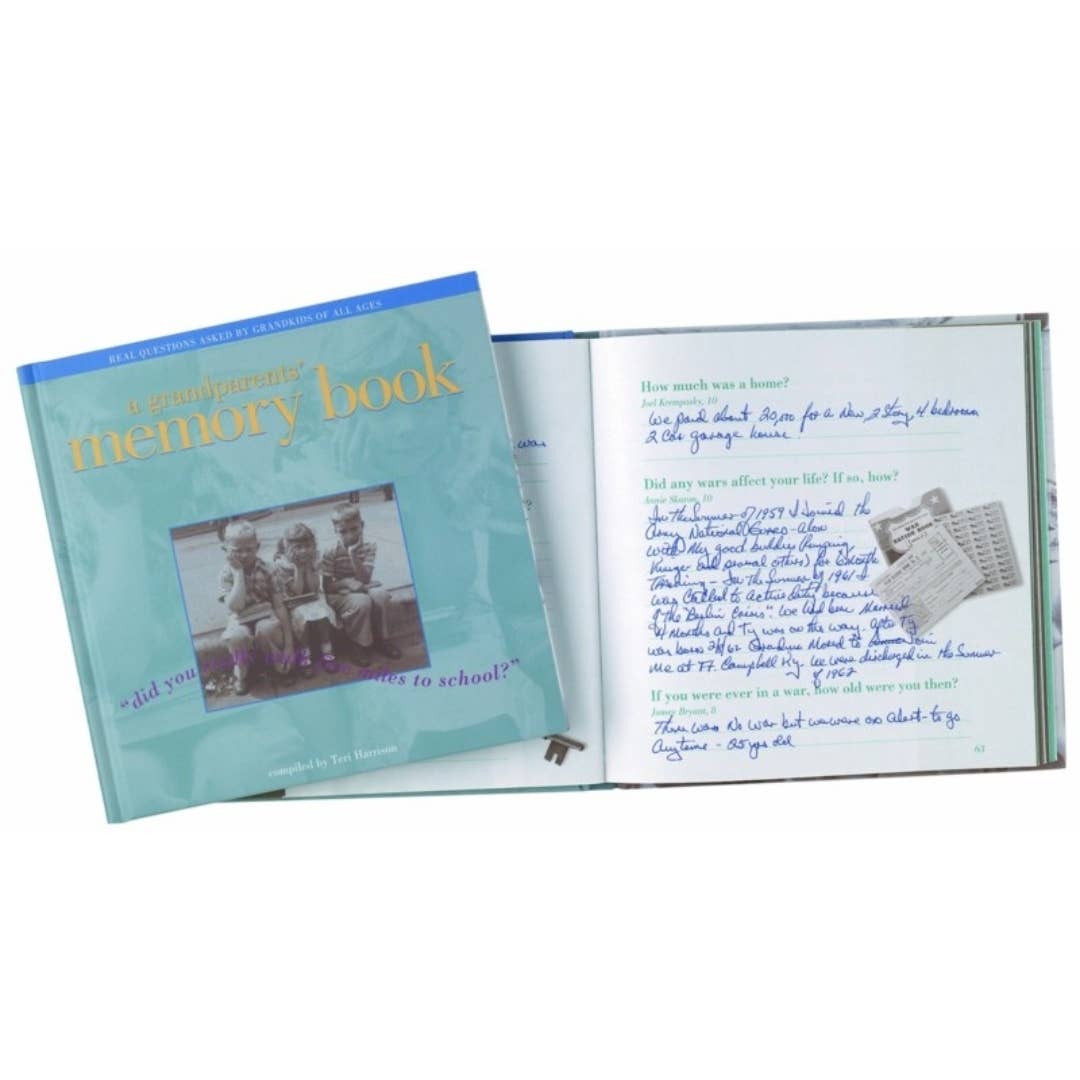 REAL QUESTIONS ASKED BY GRANDKIDS OF ALL AGES
a grandparents'
memory book
"did you miles to school?"
compiled by Teri Harrison
was
?
How much was a home?
Joel Krempasky, 10
We paid about 20,000 for a New, 2 Story, 4 bedroom
2 Car garage house.
Did any wars affect your life? If so, how?
Annie Skaron, 10
In the Summer of 1959 I Joined the
Army National - Along
with My good buddies
Kruger and several others) for 6 Month
Training - In the Summer of 1961 I
was Called to Active duty because
of the "Berlin Crisis". We had been Married
4 Months and Ty was on the way. After Ty
was born 2/8/62 Grandma Moved to Join
Me at FT. Campbell Ky. We were discharged in the Summer
of 1962
WAR
RATION BOOK
If you were ever in a war, how old were you then?
James Bryant, 8
There was No War but we were on Alert - to go
Anytime - 25 yrs old
63